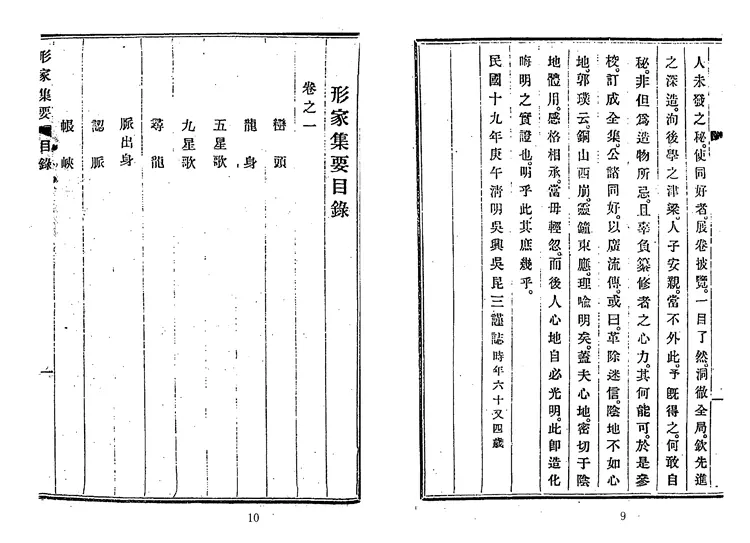 人未發之秘。使同好者。展卷披覽。一目了然。洞徹全局。欽先進
之深造。洵後學之津梁。人子安親。當不外此。予旣得之。何敢自
秘。非但爲造物所忌。且辜負纂修者之心力。其何能可。於是參
校。訂成全集。公諸同好。以廣流傳。或曰。革除迷信。陰地不如心
地。郭璞云。銅山西崩。靈鐘東應。理喩明矣。蓋夫心地。密切于陰
地體用。感格相承。當毋輕忽。而後人心地自必光明。此卽造化
晦明之實證也。明乎此其庶幾乎。
民國十九年庚午淸明吳興吳昆三謹誌時年六十又四歲
一
9
形家集要目錄
卷之一
巒頭
龍身
五星歌
九星歌
尋龍
脈出身
認脈
帳峽
形家集要 目錄
一
10